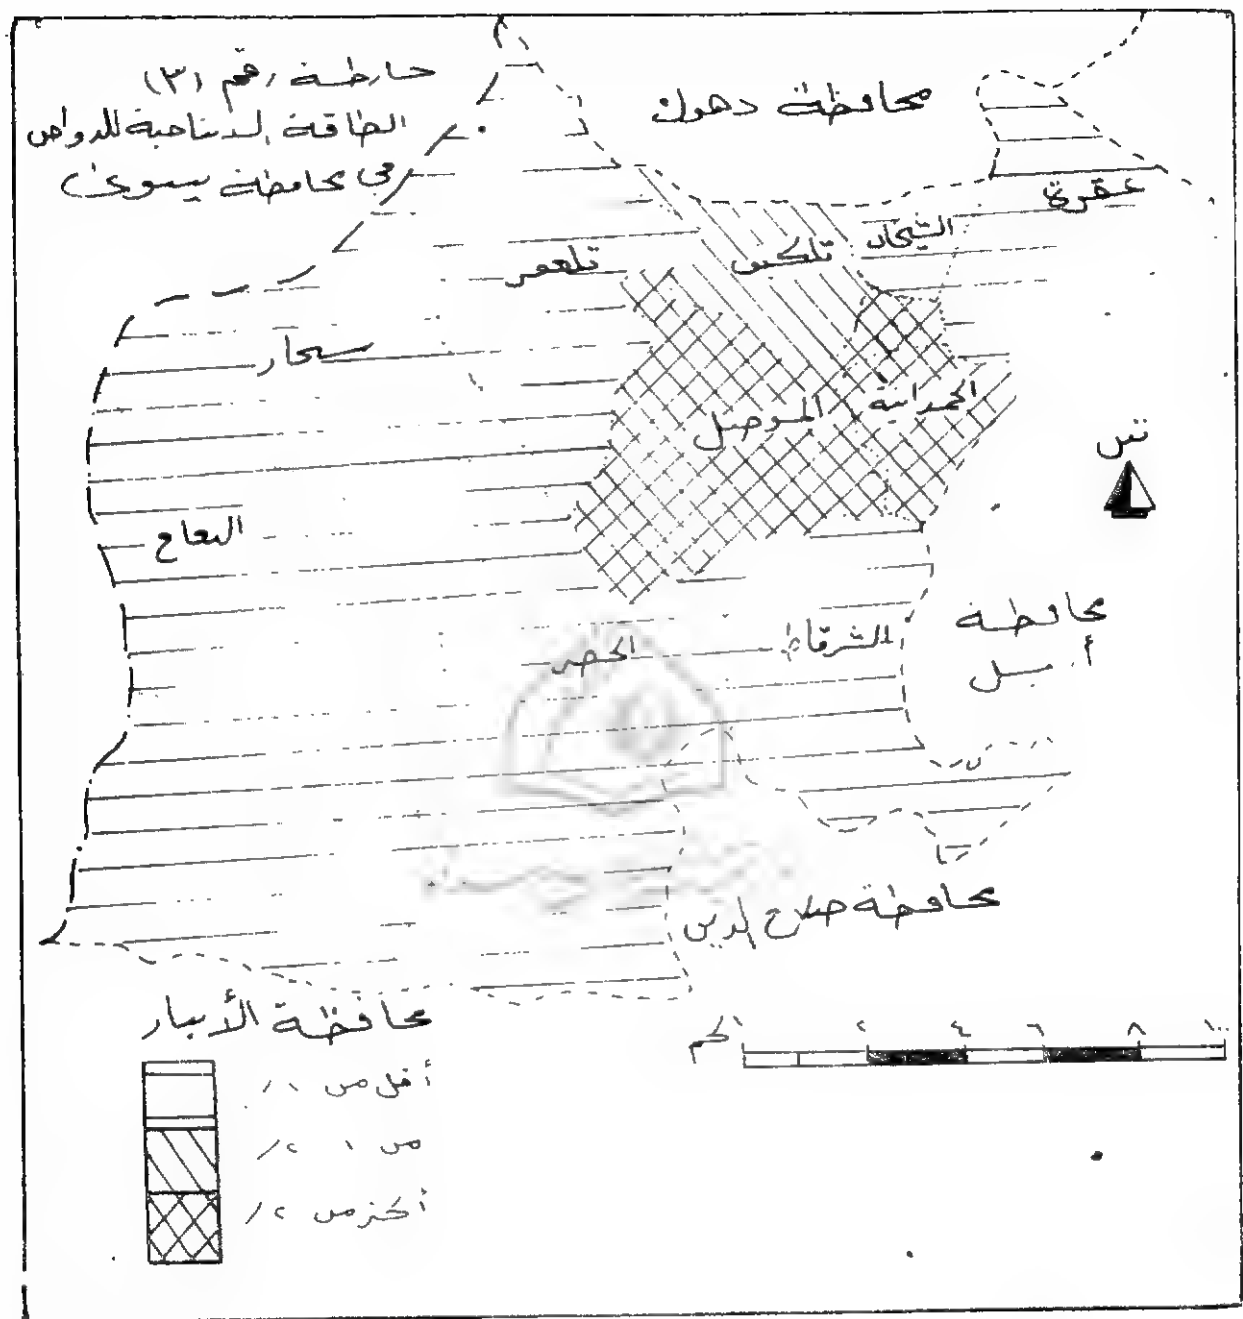 خارطة رقم (٣)
الطاقة الانتاجية للدواجن
في محافظة نينوى
محافظة دهوك
عقرة
الشيخان
تلكيف
تلعفر
سنجار
الموصل
الحمدانية
ش
البعاج
الحضر
الشرقاط
محافظة
أربيل
محافظة صلاح الدين
محافظة الأنبار
كم
٢ ٤ ٦ ٨ ١٠٠
أقل من ١٪
من ١ ٢٪
أكثر من ٢٪